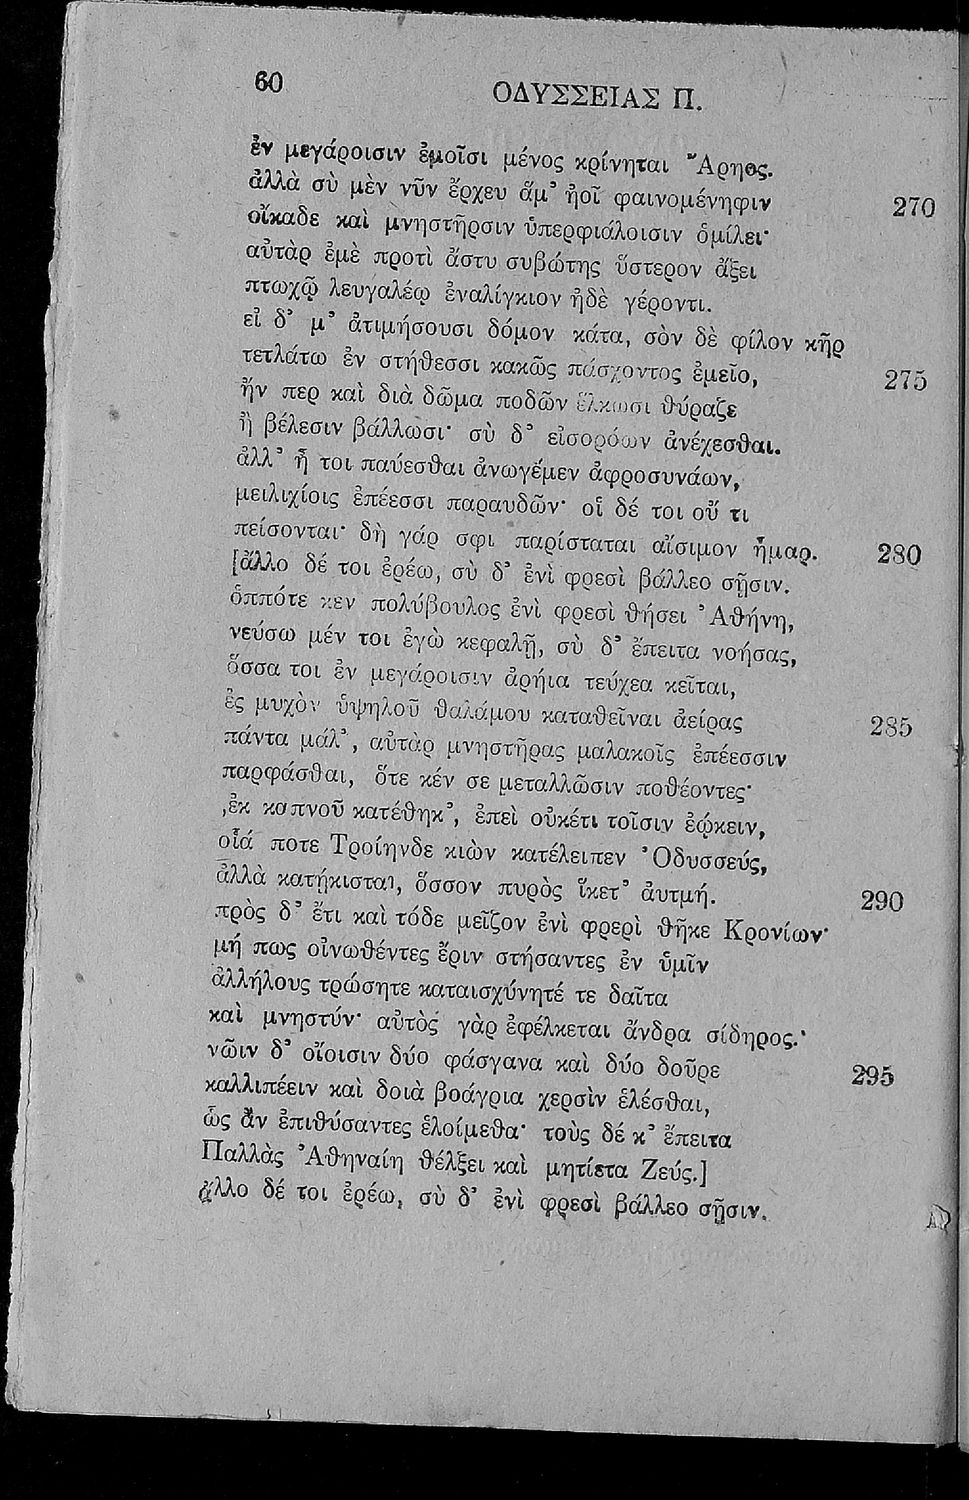 60
ΟΔΥΣΣΕΙΑΣ Π.
ἐν μεγάροισιν ἐμοῖσι μένος κρίνηται Ἄρηος.
ἀλλὰ σὺ μὲν νῦν ἔρχευ ἅμ᾽ ἠοῖ φαινομένηφιν 270
οἴκαδε καὶ μνηστῆρσιν ὑπερφιάλοισιν ὁμίλει·
αὐτὰρ ἐμὲ προτὶ ἄστυ συβώτης ὕστερον ἄξει
πτωχῷ λευγαλέῳ ἐναλίγκιον ἠδὲ γέροντι.
εἰ δ᾽ μ᾽ ἀτιμήσουσι δόμον κάτα, σὸν δὲ φίλον κῆρ
τετλάτω ἐν στήθεσσι κακῶς πάσχοντος ἐμεῖο, 275
ἤν περ καὶ διὰ δῶμα ποδῶν ἕλκωσι θύραζε
ἢ βέλεσιν βάλλωσι· σὺ δ᾽ εἰσορόων ἀνέχεσθαι.
ἀλλ᾽ ἦ τοι παύεσθαι ἀνωγέμεν ἀφροσυνάων,
μειλιχίοις ἐπέεσσι παραυδῶν· οἱ δέ τοι οὔ τι
πείσονται· δὴ γάρ σφι παρίσταται αἴσιμον ἦμαρ. 280
[ἄλλο δέ τοι ἐρέω, σὺ δ᾽ ἐνὶ φρεσὶ βάλλεο σῇσιν.
ὁππότε κεν πολύβουλος ἐνὶ φρεσὶ θήσει Ἀθήνη,
νεύσω μέν τοι ἐγὼ κεφαλῇ, σὺ δ᾽ ἔπειτα νοήσας,
ὅσσα τοι ἐν μεγάροισιν ἀρήια τεύχεα κεῖται,
ἐς μυχὸν ὑψηλοῦ θαλάμου καταθεῖναι ἀείρας 285
πάντα μάλ᾽, αὐτὰρ μνηστῆρας μαλακοῖς ἐπέεσσιν
παρφάσθαι, ὅτε κέν σε μεταλλῶσιν ποθέοντες·
‚ἐκ καπνοῦ κατέθηκ᾽, ἐπεὶ οὐκέτι τοῖσιν ἐῴκειν,
οἷά ποτε Τροίηνδε κιὼν κατέλειπεν Ὀδυσσεύς,
ἀλλὰ κατῄκισται, ὅσσον πυρὸς ἵκετ᾽ ἀυτμή. 290
πρὸς δ᾽ ἔτι καὶ τόδε μεῖζον ἐνὶ φρερὶ θῆκε Κρονίων·
μή πως οἰνωθέντες ἔριν στήσαντες ἐν ὑμῖν
ἀλλήλους τρώσητε καταισχύνητέ τε δαῖτα
καὶ μνηστύν· αὐτὸς γὰρ ἐφέλκεται ἄνδρα σίδηρος.‘
νῶιν δ᾽ οἴοισιν δύο φάσγανα καὶ δύο δοῦρε 295
καλλιπέειν καὶ δοιὰ βοάγρια χερσὶν ἑλέσθαι,
ὡς ἂν ἐπιθύσαντες ἑλοίμεθα· τοὺς δέ κ᾽ ἔπειτα
Παλλὰς Ἀθηναίη θέλξει καὶ μητίετα Ζεύς.]
ἄλλο δέ τοι ἐρέω, σὺ δ᾽ ἐνὶ φρεσὶ βάλλεο σῇσιν.